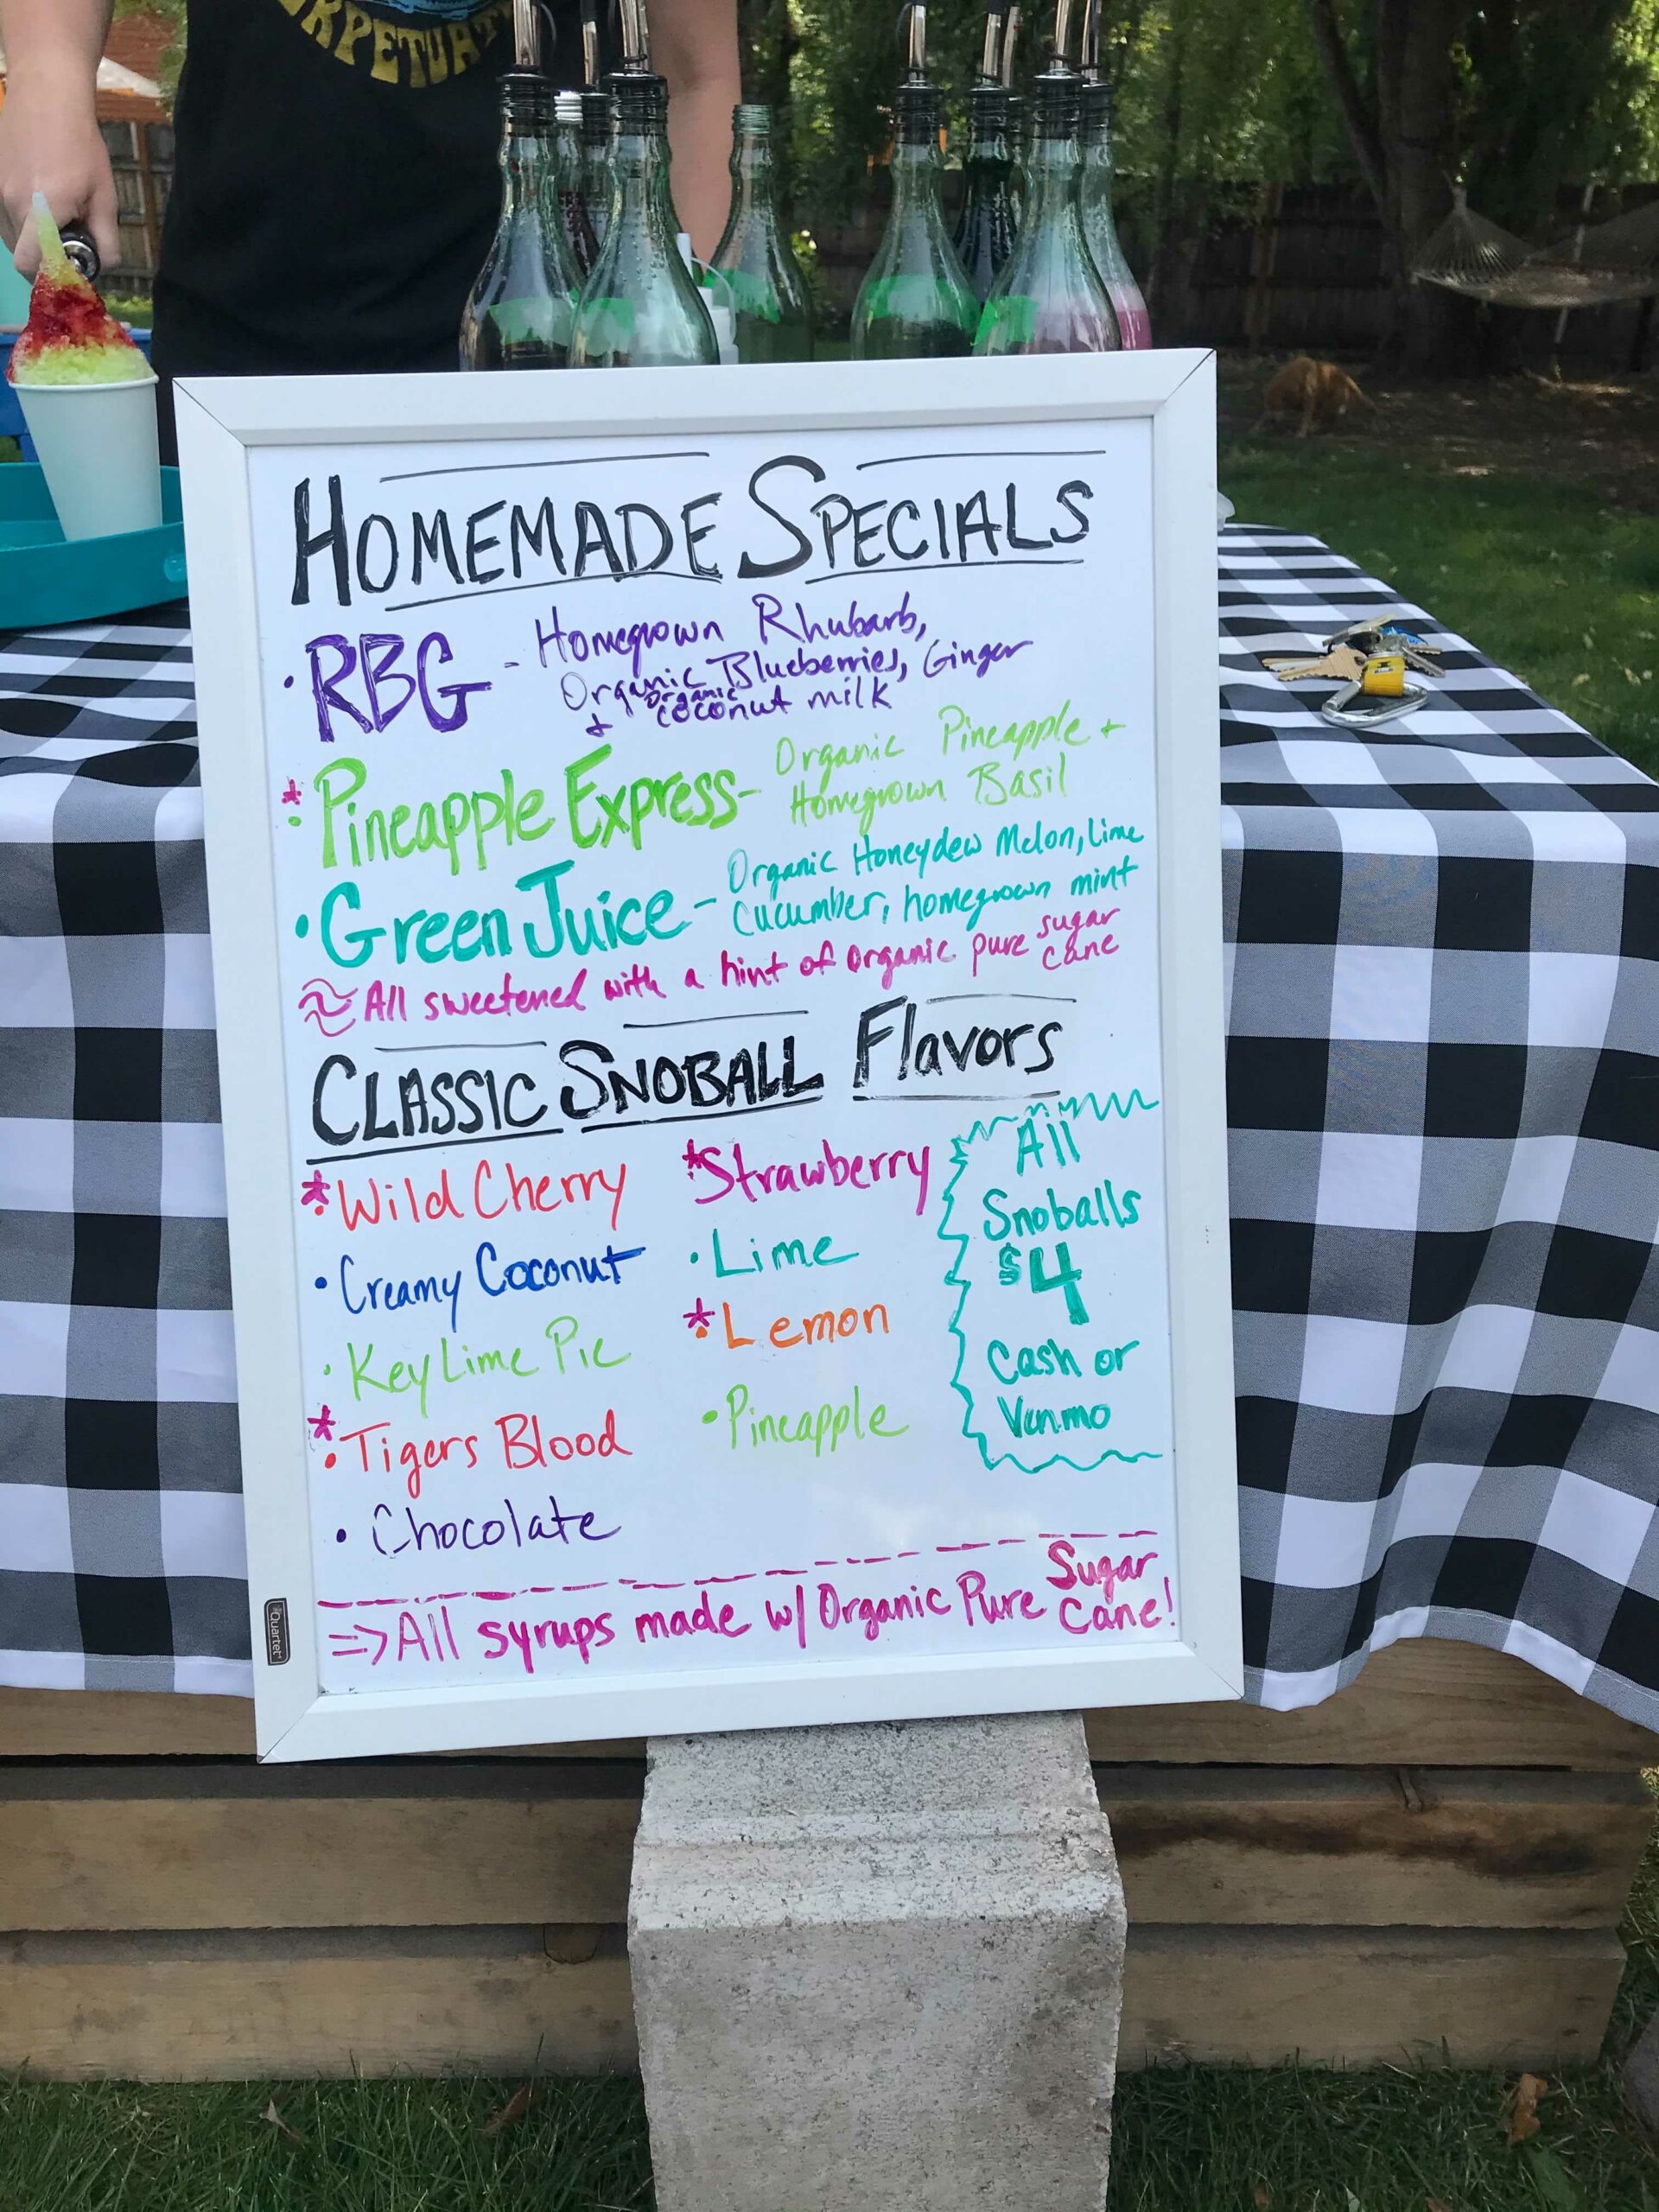 RPETUAT
HOMEMADE SPECIALS
• RBG - Homegrown Rhubarb,
Organic Blueberries, Ginger
+ Organic coconut milk
* • Pineapple Express - Organic Pineapple +
Homegrown Basil
• Green Juice - Organic Honeydew Melon, Lime
Cucumber, homegrown mint
≈ All sweetened with a hint of organic pure sugar cane
CLASSIC SNOBALL Flavors
* • Wild Cherry
• Creamy Coconut
• Key Lime Pie
* • Tigers Blood
• Chocolate
* Strawberry
• Lime
* • Lemon
• Pineapple
All
Snoballs
$4
Cash or
Venmo
=> All syrups made w/ Organic Pure Sugar Cane!
Quartet